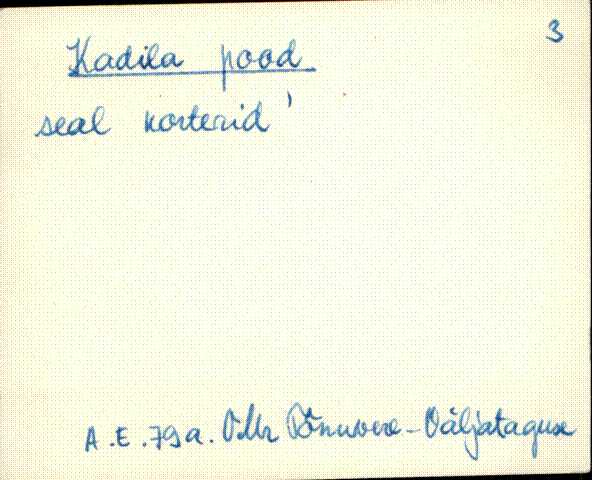 3
Kadila pood
seal korterid'
A.E. 79a. V.Mr Põnuvere-Väljataguse